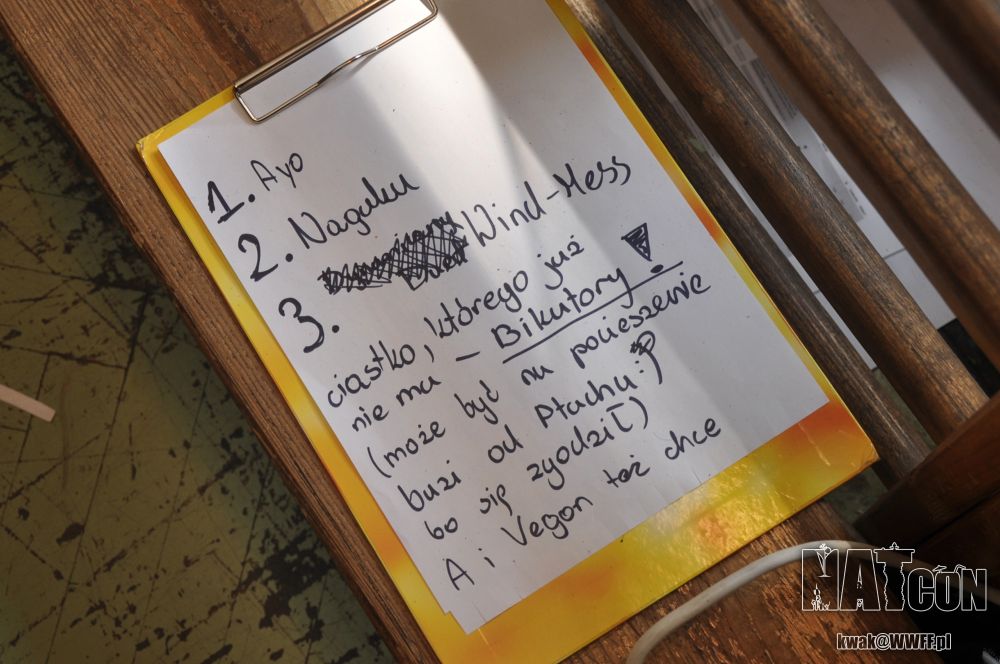 1. Ayo
2. Nagaku
3. Wind-Mess
ciastko, którego już
nie ma - Bikutory!
(może być na pocieszenie
buzi od Ptachu :P
bo się zgodził)
A i Vegon też chce
NATCON
kwak@WWFF.pl